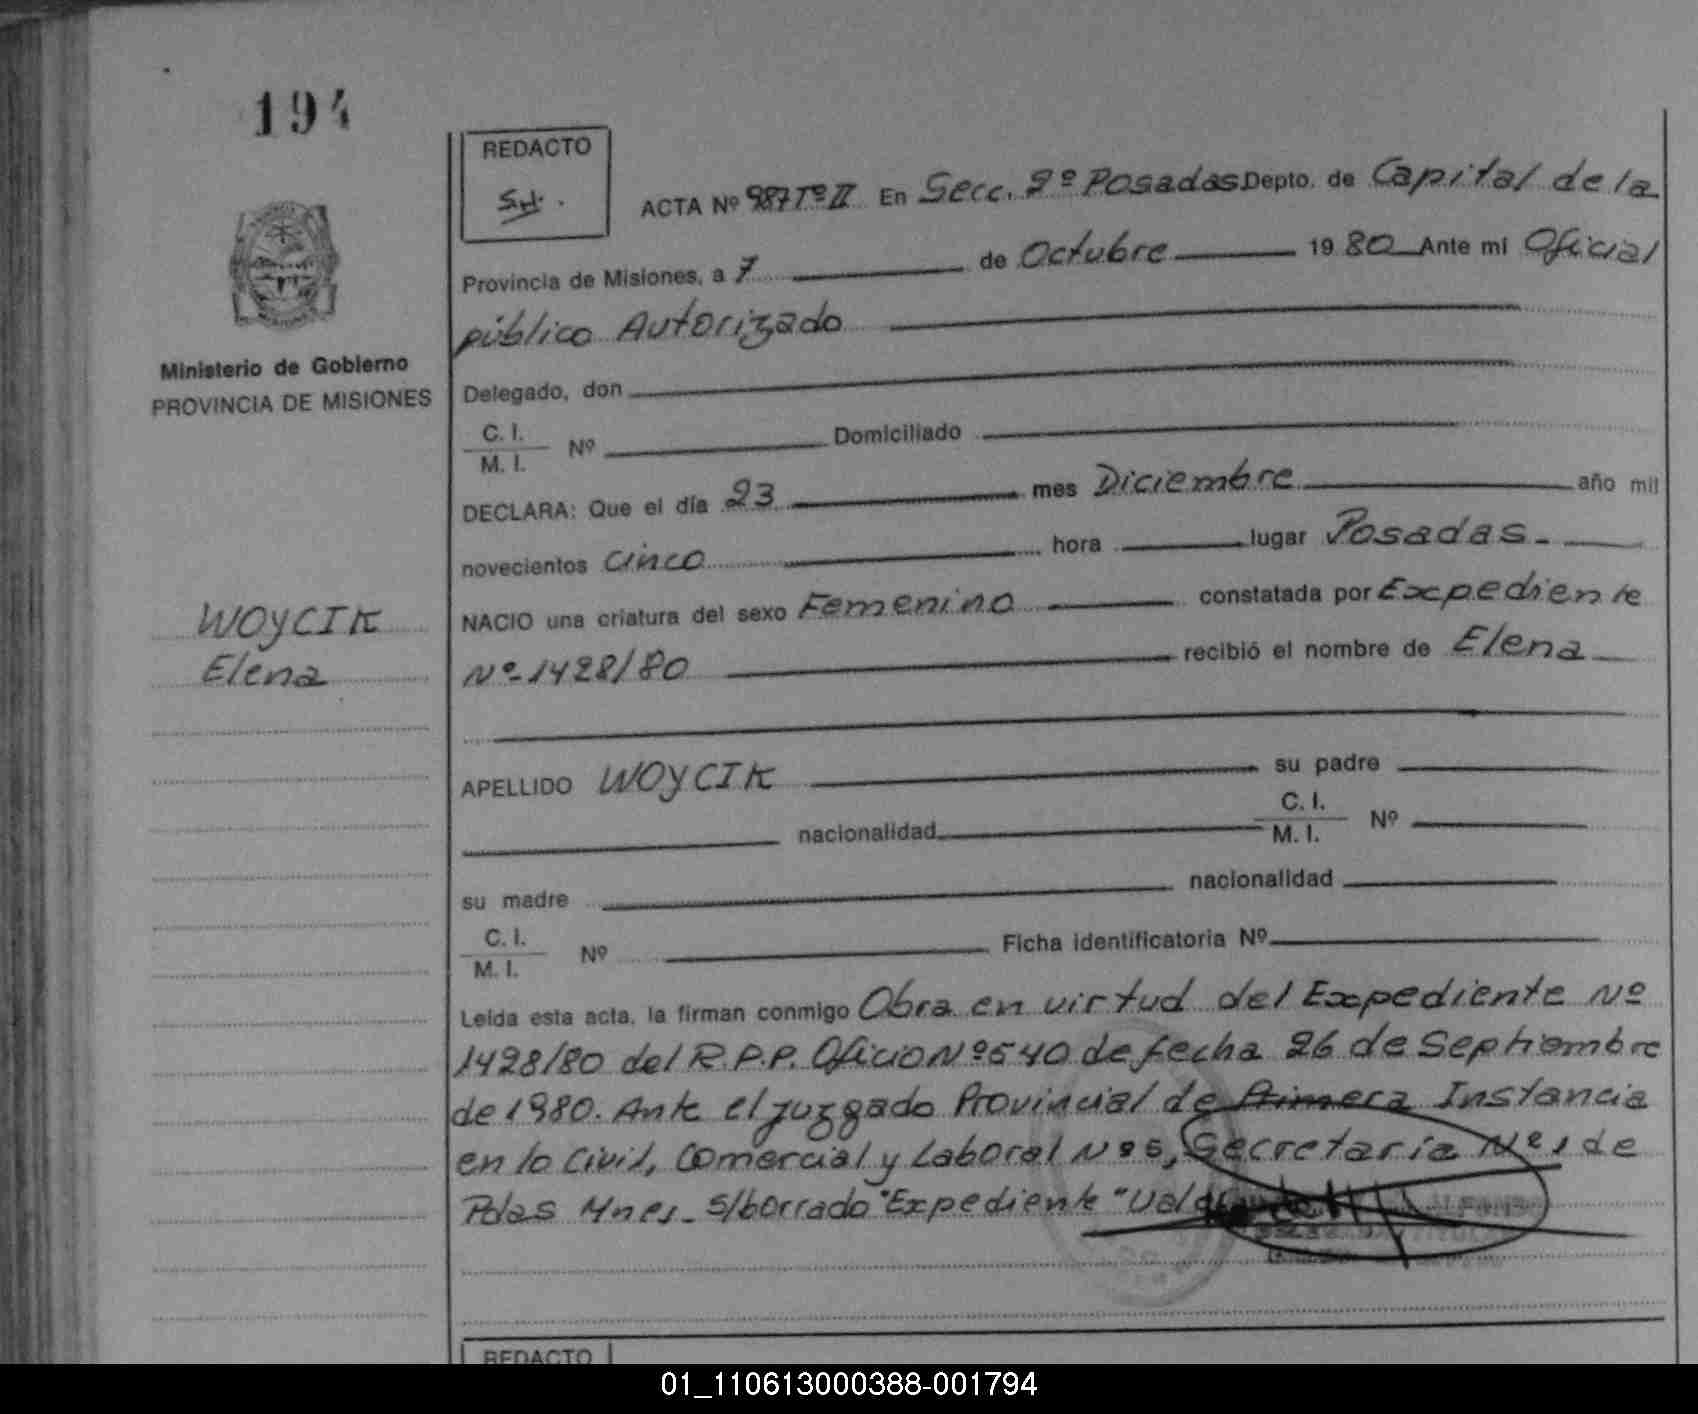 194
REDACTO
ACTA Nº 987 Tº II En Secc. 2º Posadas Depto. de Capital de la
Provincia de Misiones, a 7 de Octubre 1980 Ante mi Oficial
público Autorizado
Ministerio de Gobierno
PROVINCIA DE MISIONES
Delegado, don
C. I.
M. I. Nº Domiciliado
DECLARA: Que el día 23 mes Diciembre año mil
novecientos cinco hora lugar Posadas.
WOYCIK
Elena
NACIO una criatura del sexo Femenino constatada por Expediente
Nº 1428/80 recibió el nombre de Elena
APELLIDO WOYCIK su padre
nacionalidad C. I.
M. I. Nº
su madre nacionalidad
C. I.
M. I. Nº Ficha identificatoria Nº
Leída esta acta, la firman conmigo Obra en virtud del Expediente Nº
1428/80 del R.P.P. Oficio Nº 540 de fecha 26 de Septiembre
de 1980. Ante el juzgado Provincial de Primera Instancia
en lo Civil, Comercial y Laboral Nº 5, Secretaria Nº 1 de
Pdas Mnes. S/borrado "Expediente"
REDACTO
01_110613000388-001794